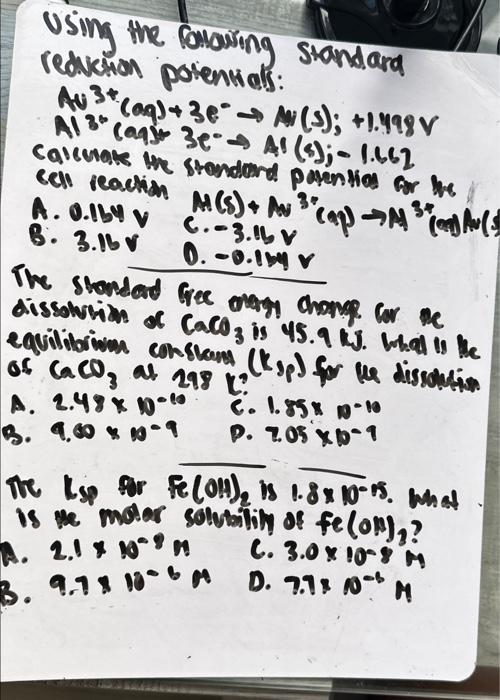 Using the following standard
reduction potentials:
Au³⁺(aq) + 3e⁻ → Au(s); +1.498 V
Al³⁺(aq) + 3e⁻ → Al(s); - 1.662
Calculate the standard potential for the
cell reaction Al(s) + Au³⁺(aq) → Al³⁺(aq) Au(s
A. 0.164 V C. -3.16 V
B. 3.16 V D. -0.164 V
The standard free energy change for the
dissolution of CaCO₃ is 45.9 kJ. What is the
equilibrium constant (Ksp) for the dissolution
of CaCO₃ at 298 K?
A. 2.48 x 10⁻¹⁰ C. 1.85 x 10⁻¹⁰
B. 9.00 x 10⁻⁹ D. 7.05 x 10⁻⁹
The Ksp for Fe(OH)₂ is 1.8 x 10⁻¹⁵. What
is the molar solubility of Fe(OH)₂?
A. 2.1 x 10⁻⁸ M C. 3.0 x 10⁻⁸ M
B. 9.7 x 10⁻⁶ M D. 7.7 x 10⁻⁶ M